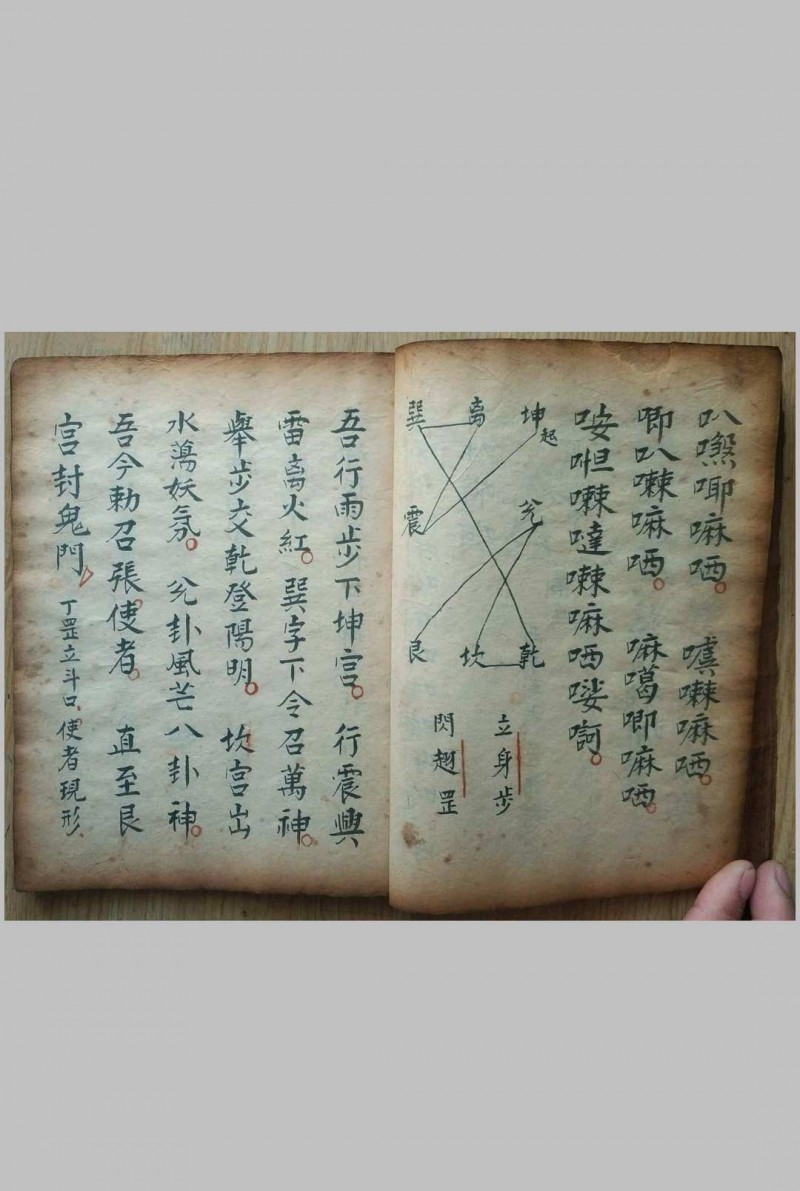 叭㗭唧嘛哂。 㖸㖦嘛哂。
唧叭㖦嘛哂。 嘛噶唧嘛哂。
咹呾㖦噠㖦嘛哂㗇訶。
坤起 兌 乾
離 坎
巽 震 艮
立身步
閃趐罡
吾行雨步下坤宫。 行震興
雷离火紅。 巽字下令召萬神。
舉步交乾登陽明。 坎宫出
水蕩妖氛。 兌卦風芒八卦神。
吾今勅召張使者。 直至艮
宫封鬼門 丁罡立斗口使者現形